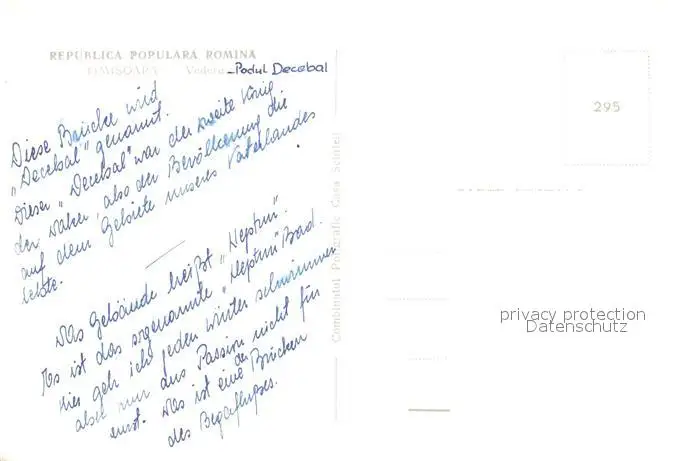 REPUBLICA POPULARA ROMINA
TIMISOARA Vedere - Podul Decebal
Diese Brücke wird
„Decebal" genannt.
Dieser „Decebal" war der zweite König
der Daker, also der Bevölkerung die
auf dem Gebiete unseres Vaterlandes
lebte.
Das Gebäude heißt „Neptun".
Es ist das sogenannte „Neptun" Bad.
Hier geh ich jeden Winter schwimmen
aber nur aus Passion nicht für
ernst. Das ist eine der Brücken
des Begaflußes.
Combinatul Poligrafic Casa Scînteii
295
privacy protection
Datenschutz